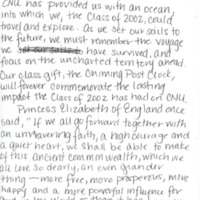 CNU has provided us with an ocean,
into which we, the Class of 2002, could
travel and explore. As we set our sails to
the future, we must remember the voyage
we have survived, and
focus on the uncharted territory ahead.
Our class gift, the Chiming Post Clock,
will forever commemorate the lasting
impact the Class of 2002 has had on CNU.
Princess Elizabeth of England once
said, "If we all go forward together with
an unwavering faith, a high courage and
a quiet heart, we shall be able to make
of this ancient commonwealth, which we
all love so dearly, an even grander
thing - more free, more prosperous, more
happy and a more powerful influence for